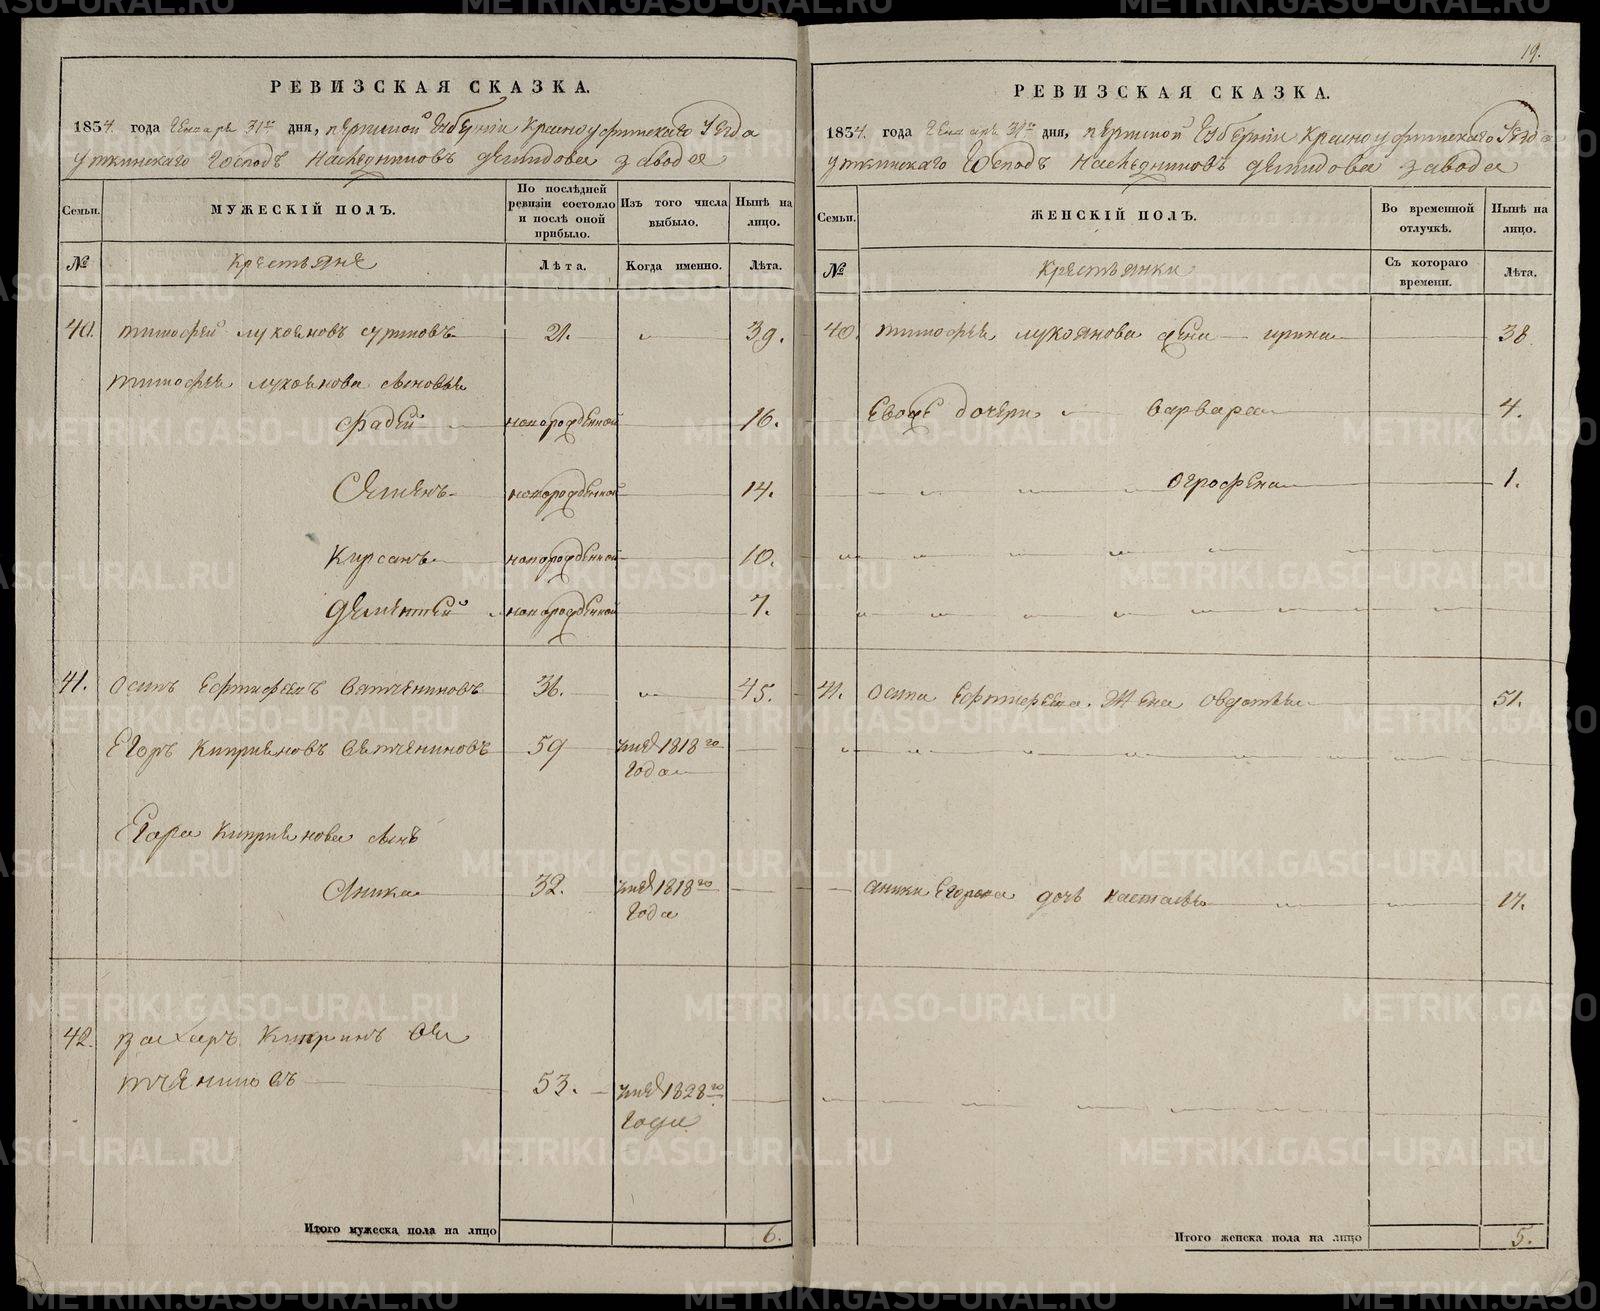 РЕВИЗСКАЯ СКАЗКА.
1834. года Генваръ 31го дня, пермской Губерніи Красноуфимскаго Уезда
Уткинскаго Господъ Наследниковъ демидова завода
Семьи.
МУЖЕСКІЙ ПОЛЪ.
По послѣдней ревизіи состояло и послѣ оной прибыло.
Изъ того числа выбыло.
Нынѣ на лицо.
№
крестьяне
Лѣта.
Когда именно.
Лѣта.
40. тимофей лукояновъ 21. 39.
тимофея лукоянова сыновья
фадей новорожденной 16.
Семенъ новорожденной 14.
Кирсанъ новорожденной 10.
дементей новорожденной 7.
41. осипъ 36. 45.
Егоръ Киприяновъ 59 1818го
Года
Егора Киприянова сынъ
Аника 32. 1818го
Года
42. захаръ
53. 1828го
Года
Итого мужеска пола на лицо 6.
19.
РЕВИЗСКАЯ СКАЗКА.
1834. года Генваръ 31го дня, пермской Губерніи Красноуфимскаго Уезда
Уткинскаго Господъ Наследниковъ демидова завода
Семьи.
ЖЕНСКІЙ ПОЛЪ.
Во временной отлучкѣ.
Нынѣ на лицо.
№
Крестьянки
Съ котораго времени.
Лѣта.
40. тимофея лукоянова жена ирина 38
Евоже дочери варвара 4.
огрофена 1.
41. осипа жена овдотья 51.
аники Егорова дочь настасья 17.
Итого женска пола на лицо 5.
METRIKI.GASO-URAL.RU